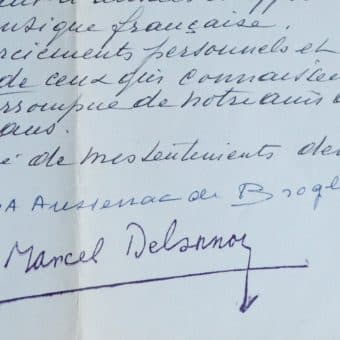 musique française.
rciements personnels et
de ceux qui connaissen
errompue de notre ami
ans.
é de mes sentiments de
A Aussenac de Brogl
Marcel Delannoy